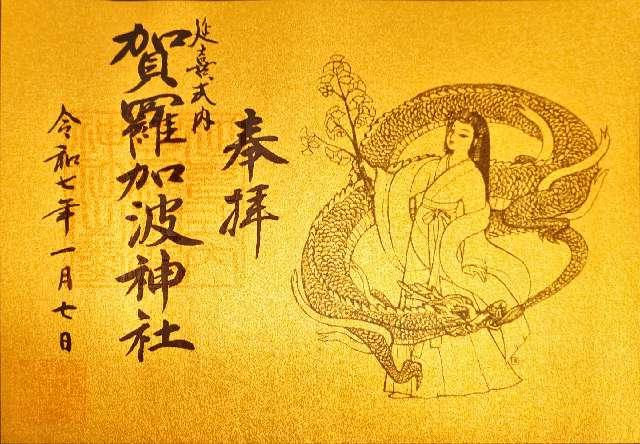 奉拝
延喜式内
賀羅加波神社
令和七年一月七日